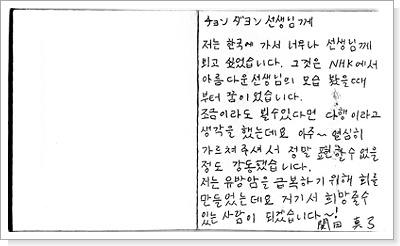 チョン ダヨン 선생님께
저는 한국에 가서 너무나 선생님께
되고 싶었습니다. 그것은 NHK에서
아름다운선생님의 모습 봤을때
부터 꿈이었습니다.
조금이라도 뵐수있다면 다행이라고
생각을 했는데요 아주~ 열심히
가르쳐주셔서 정말 표현할수없을
정도 감동됐습니다.
저는 유방암을 극복하기 위해 회를
만들었는데요 거기서 희망줄수
있는 사람이 되겠습니다~!
関田 真弓